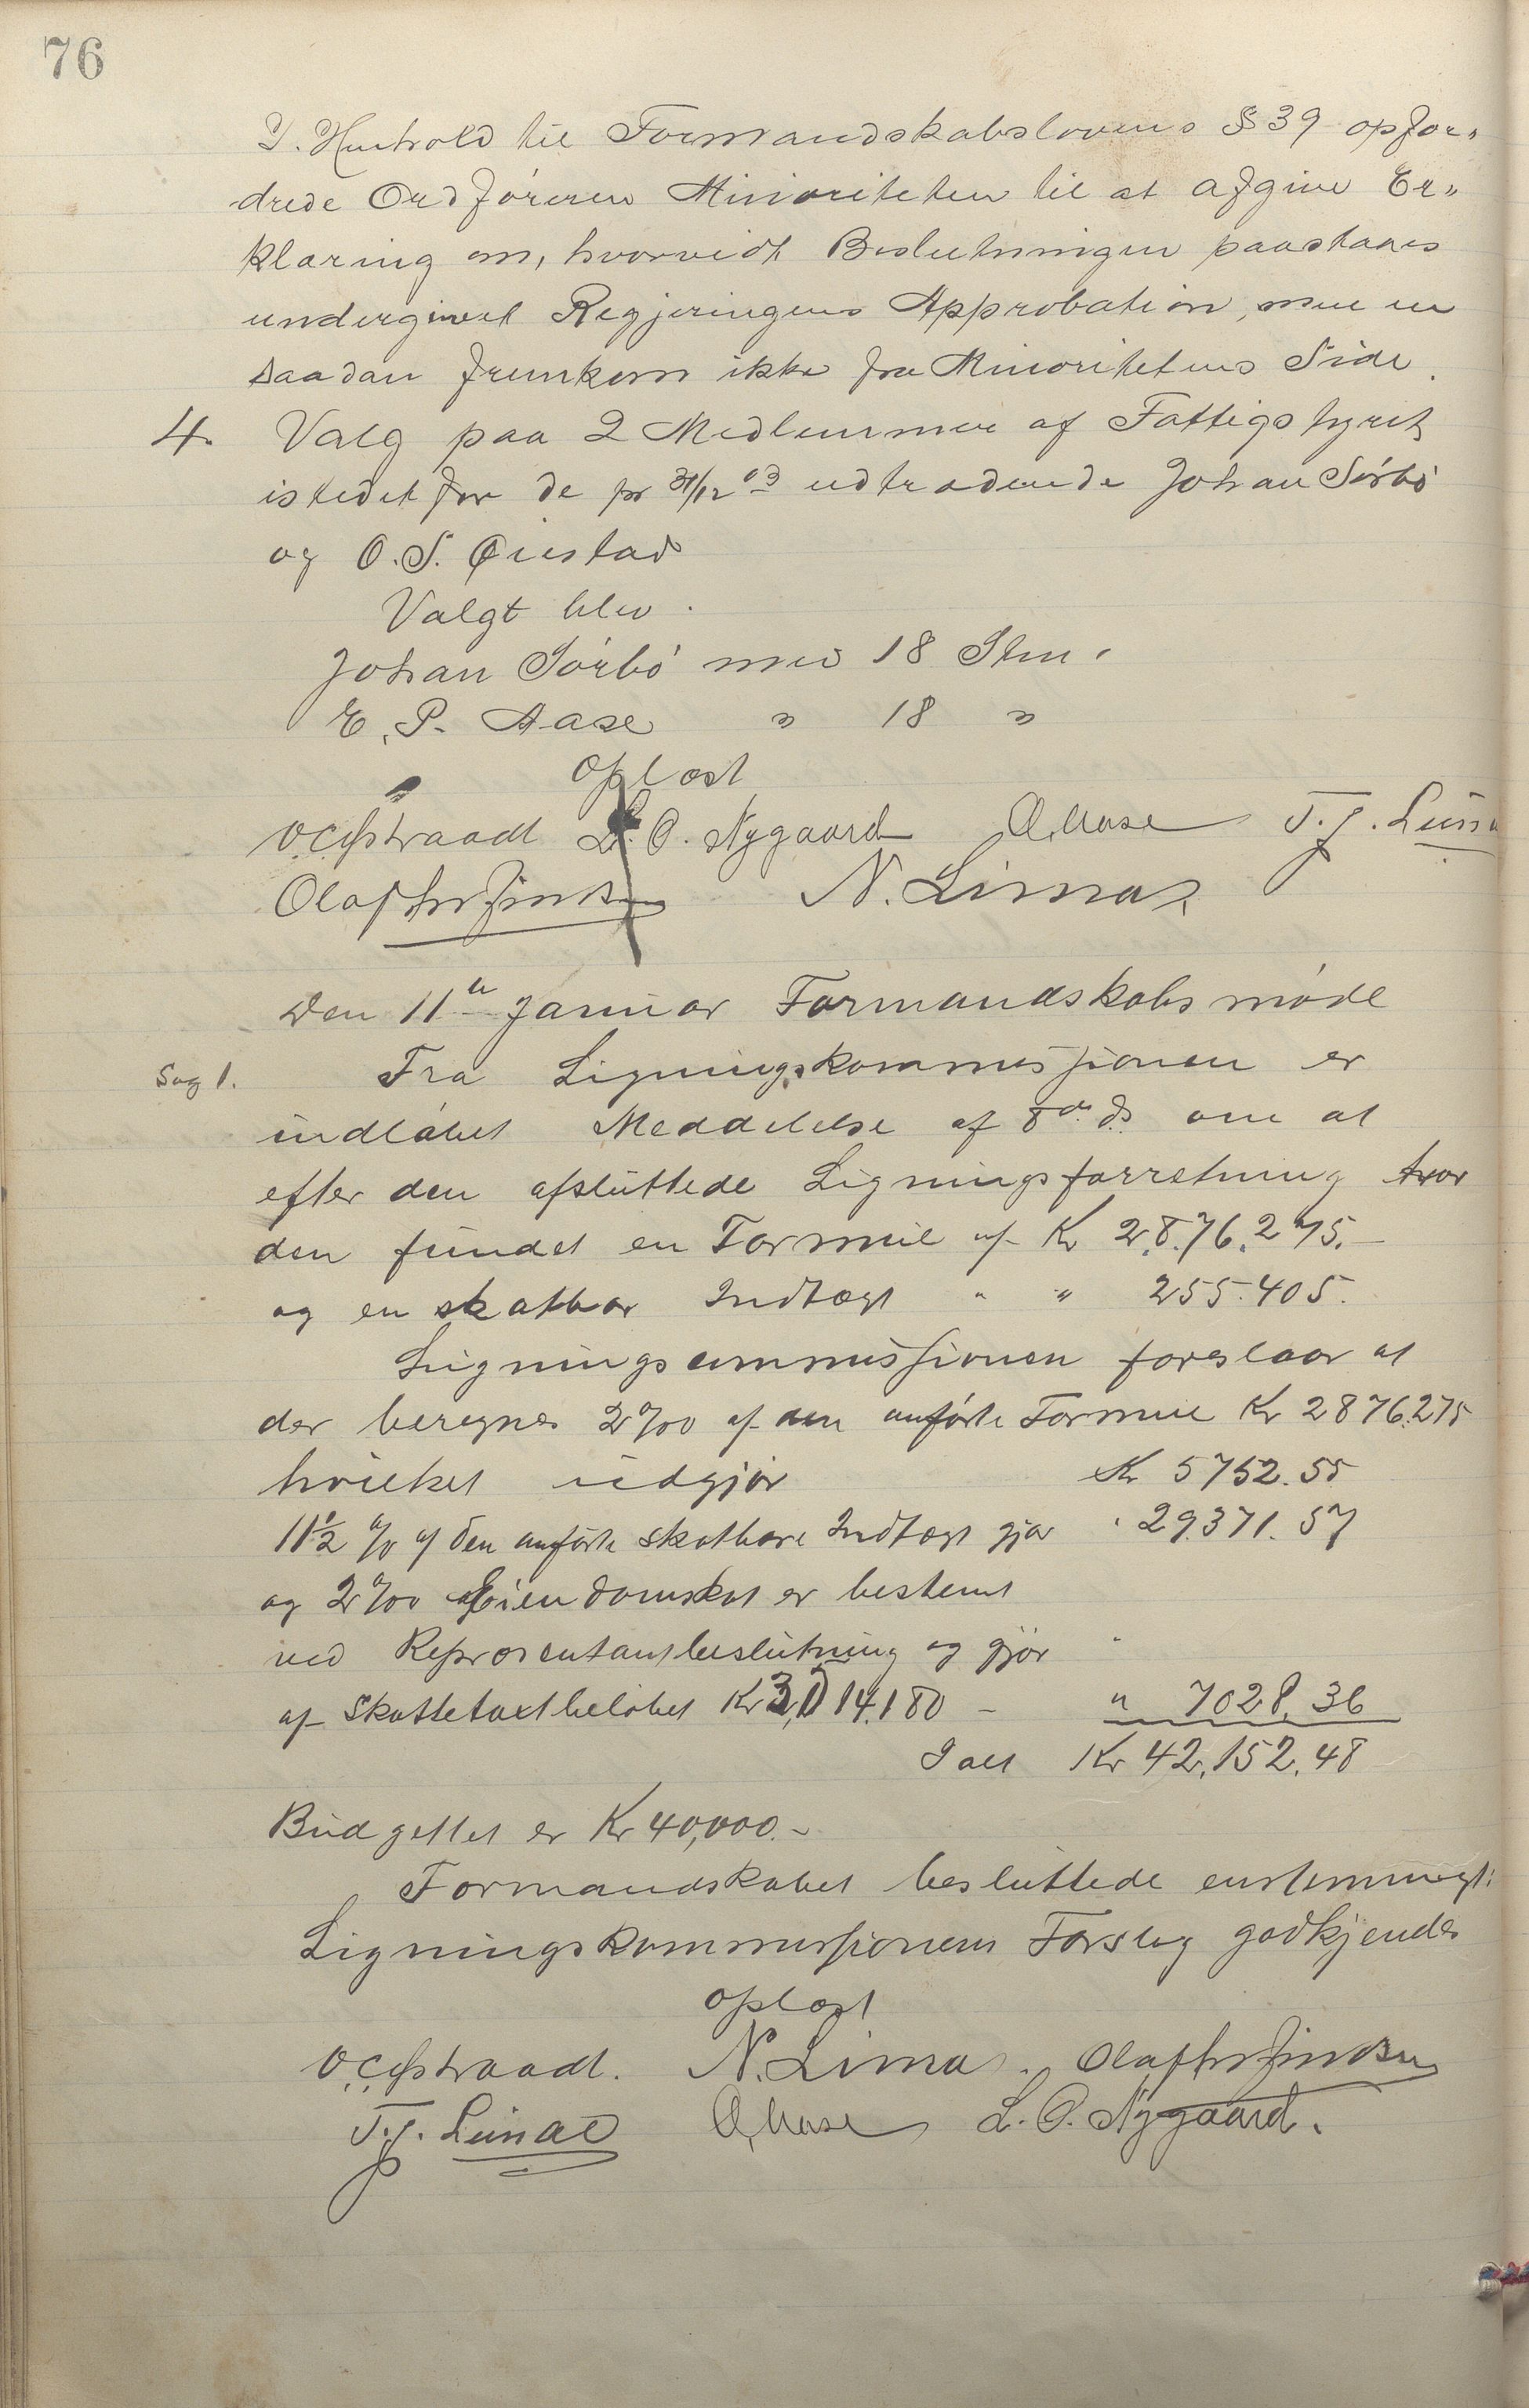 76
I. Henhold til Formandskabslovens § 39 opfor„
drede Ordføreren Minoriteten til at afgive Er„
klæring om, hvorvidt Beslutningen paastaaes
undergivet Regjeringens Approbation, men en
saadan fremkom ikke fra Minoritetens Side.
4. Valg paa 2 Medlemmer af Fattigstyret
istedetfor de pr 31/12 03 udtrædende Johan Sörbö
og O. S. Øiestad
Valgt blev.
Johan Sörbö med 18 Stm.
E. P. Aase " 18 "
Oplæst
L. O. Nygaard O. Aase T. J. Lima
N. Lima
Den 11te Januar Formandskabsmøde
Sag 1. Fra Ligningskommissionen er
indløbet Meddelelse af 8de ds. om at
efter den afsluttede Ligningsforretning hvor
den fundet en Formue af Kr 2.876.275.–
og en skatbar Indtægt " " 255.405.
Ligningscommissionen foreslaar at
der beregnes 2 0/00 af den anførte Formue Kr 2876.275
hvilket udgjør Kr 5752.55
11 1/2 % af den anførte skatbare Indtægt gjør " 29.371.57
og 2 0/00 Eiendomskat er bestemt
ved Repræsentantbeslutning og gjør "
af Skattetaxtbeløbet Kr 3,514.180 – " 7028.36
I alt Kr 42,152.48
Budgettet er Kr 40,000.–
Formandskabet besluttede enstemmigt:
Ligningskommissionens Forslag godkjendes
oplæst
N. Lima
T. J. Lima O. Aase L. O. Nygaard.